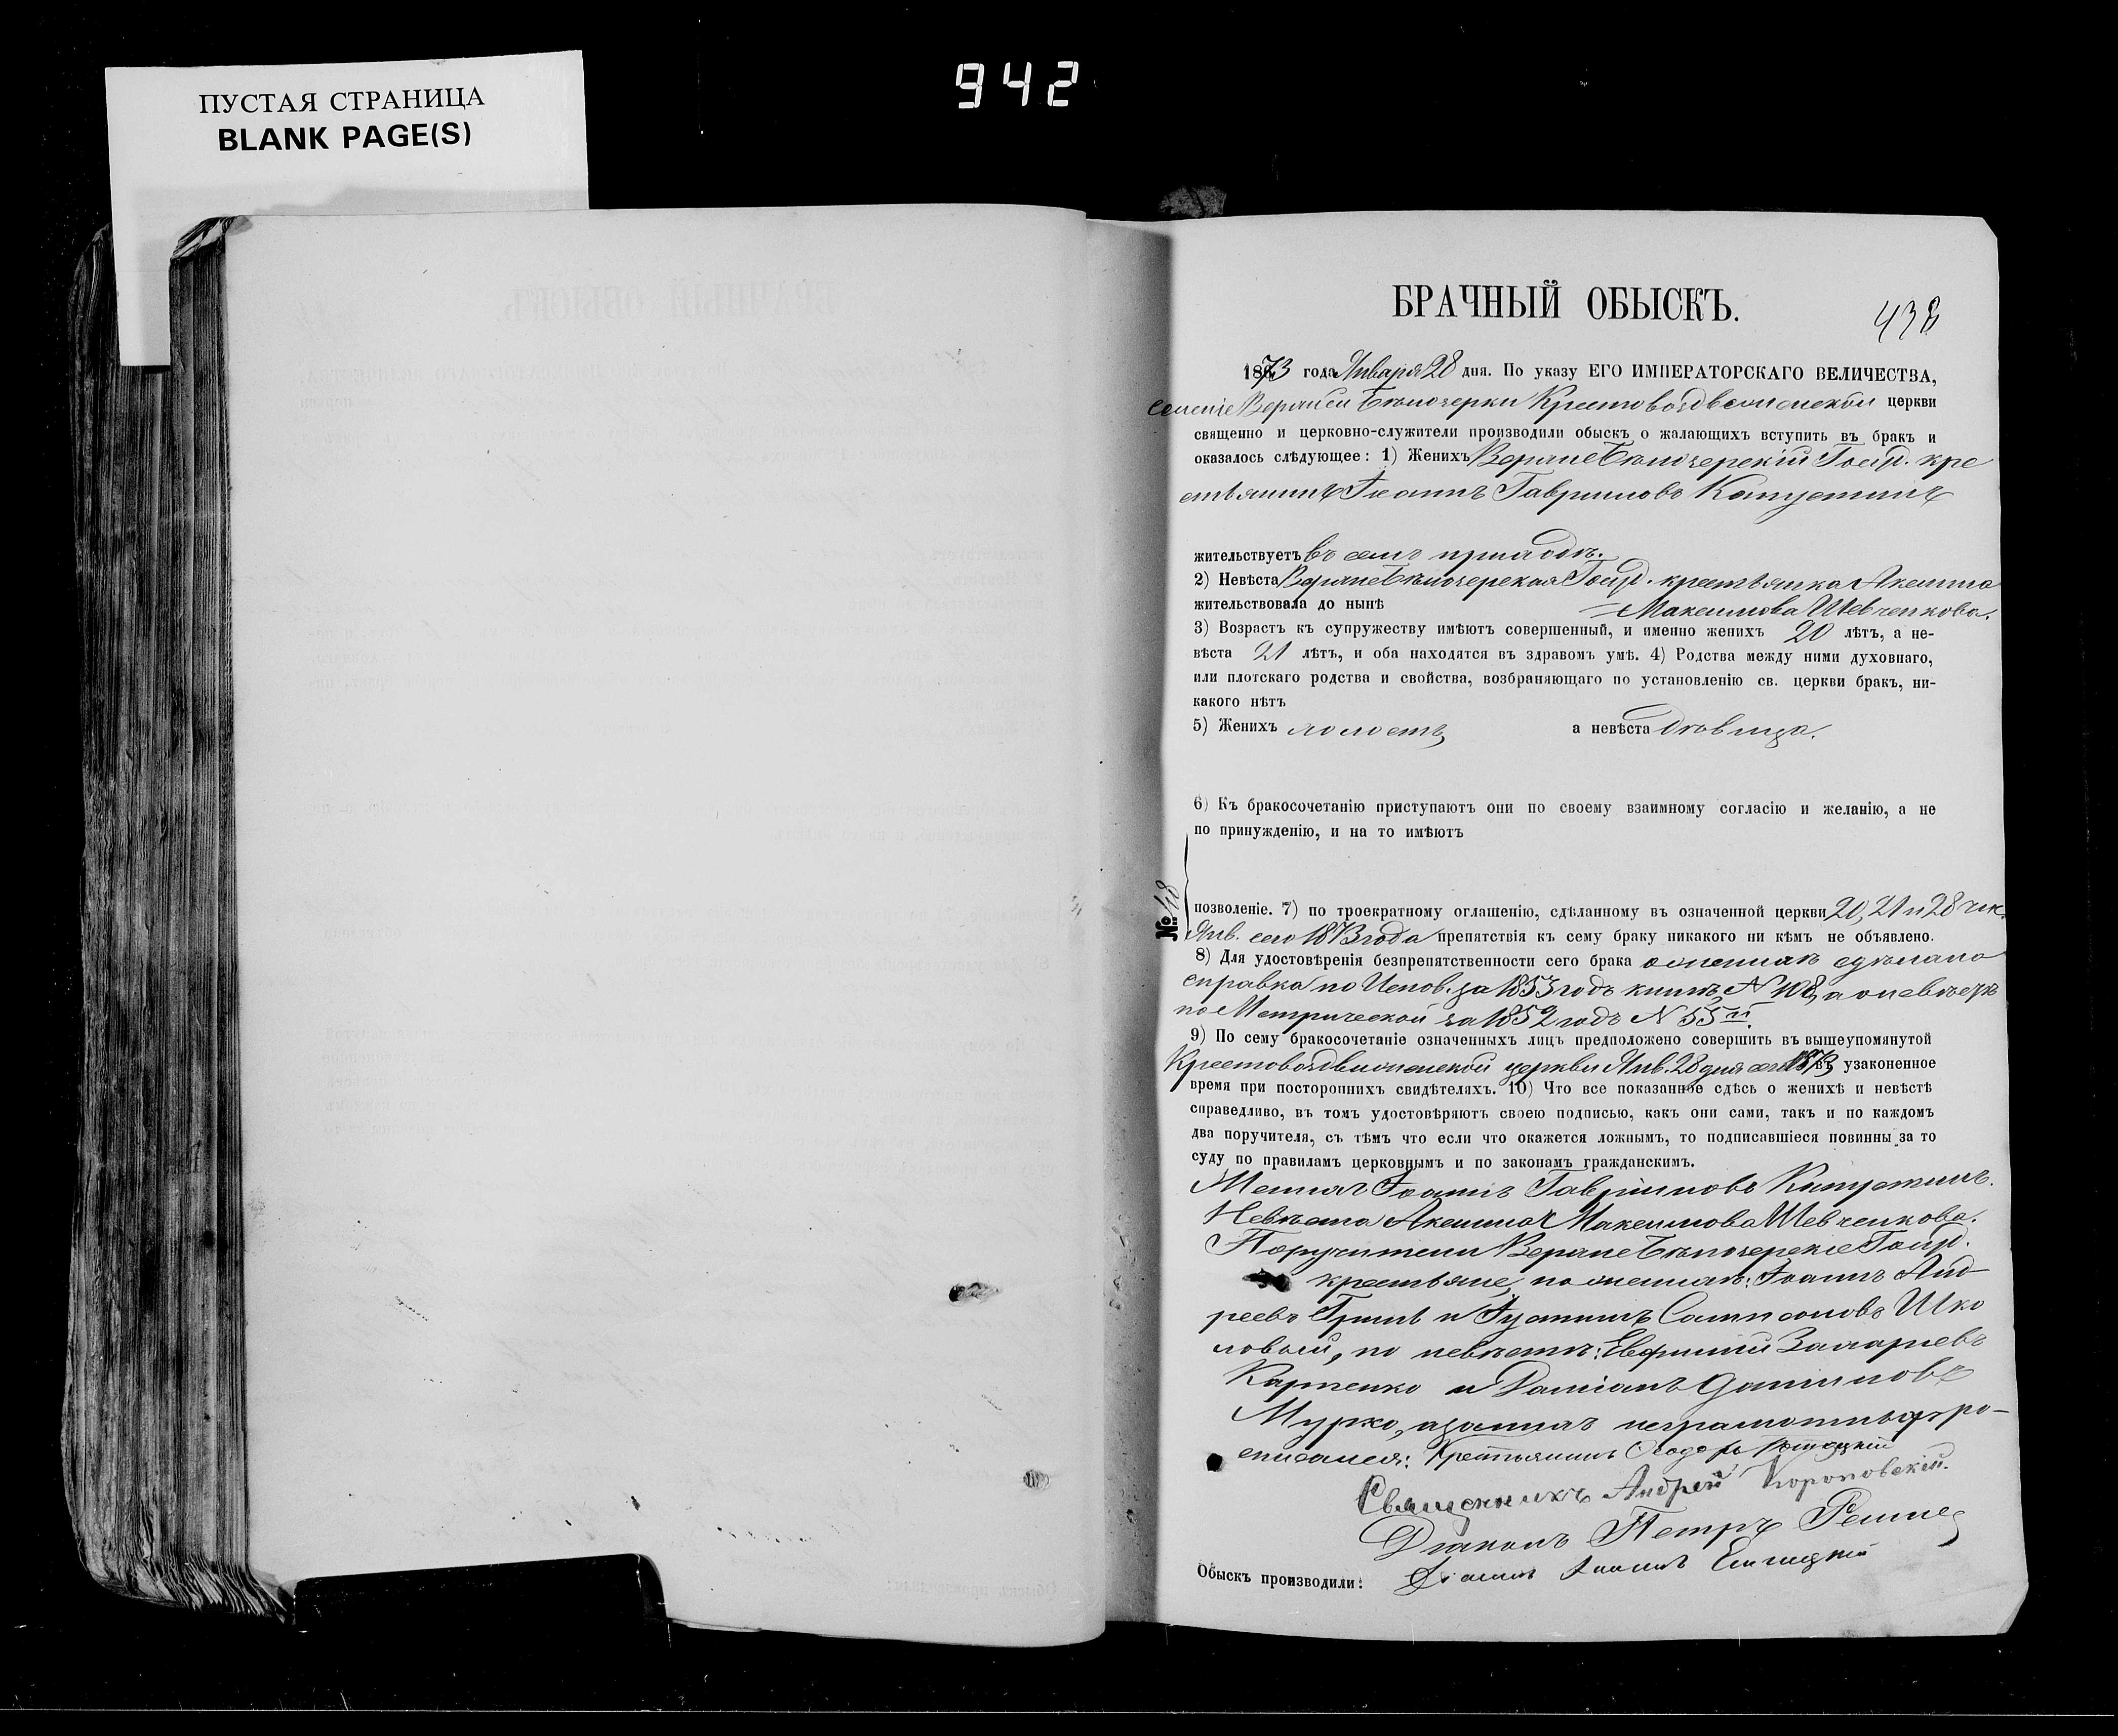 942
ПУСТАЯ СТРАНИЦА
BLANK PAGE(S)
БРАЧНЫЙ ОБЫСКЪ.
438
1873 года Января 28 дня. По указу ЕГО ИМПЕРАТОРСКАГО ВЕЛИЧЕСТВА,
селенія Верхней Бѣлозерки Крестовоздвиженской церкви
священно и церковно-служители производили обыскъ о жалающихъ вступить въ бракъ и
оказалось слѣдующее: 1) Женихъ Верхнебѣлозерскій Госуд. кре
стьянинъ Іоаннъ Гавриловъ Капустинъ
жительствуетъ въ семъ приходѣ.
2) Невѣста Верхнебѣлозерская Госуд. крестьянка Акилина
жительствовала до нынѣ Максимова Шевченкова.
3) Возрастъ къ супружеству имѣютъ совершенный, и именно женихъ 20 лѣтъ, а не-
вѣста 21 лѣтъ, и оба находятся въ здравомъ умѣ. 4) Родства между ними духовнаго,
или плотскаго родства и свойства, возбраняющаго по установленію св. церкви бракъ, ни-
какого нѣтъ
5) Женихъ холостъ, а невѣста дѣвица.
6) Къ бракосочетанію приступаютъ они по своему взаимному согласію и желанію, а не
по принужденію, и на то имѣютъ
№ 18
позволеніе. 7) по троекратному оглашенію, сдѣланному въ означенной церкви 20, 21 и 28 чис.
Янв. сего 1873 года препятствія къ сему браку никакого ни кѣмъ не объявлено.
8) Для удостовѣренія безпрепятственности сего брака о женихѣ сдѣлана
справка по Испов. за 1853 годъ книгѣ, N 108, а о невѣстѣ
по Метрической за 1852 годъ N 55й.
9) По сему бракосочетаніе означенныхъ лицъ предположено совершить въ вышеупомянутой
Крестовоздвиженской церкви Янв. 28 дня сего 1873 въ узаконенное
время при постороннихъ свидѣтеляхъ. 10) Что все показанное сдѣсь о женихѣ и невѣстѣ
справедливо, въ томъ удостовѣряютъ своею подписью, какъ они сами, такъ и по каждомъ
два поручителя, съ тѣмъ что если что окажется ложнымъ, то подписавшіеся повинны за то
суду по правиламъ церковнымъ и по законамъ гражданскимъ.
Женихъ Іоаннъ Гавриловъ Капустинъ.
Невѣста Акилина Максимова Шевченкова.
Поручители Верхнебѣлозерскіе Госуд.
крестьяне, по женихѣ: Іоаннъ Анд
реевъ Гринь и Іустинъ Сампсоновъ Шко
ловый, по невѣстѣ: Евфимій Захаріевъ
Карпенко и Даміанъ Даниловъ
Мурко, а за нихъ неграмотныхъ ро-
списался: Крестьянинъ Ѳеодоръ
Священникъ Андрей Короповскій.
Діаконъ Петръ
Обыскъ производили: Іоаннъ